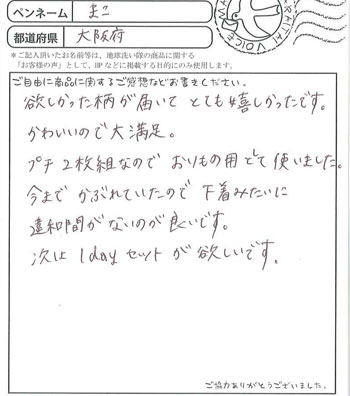 ペンネーム まこ
都道府県 大阪府
＊ご記入頂いたお名前等は、地球洗い隊の商品に関する
「お客様の声」として、HPなどに掲載する目的にのみ使用します。
ご自由に商品に関するご感想などお書きください。
欲しかった柄が届いて とても嬉しかったです。
かわいいので大満足。
プチ2枚組なので おりもの用として使いました。
今まで かぶれていたので 下着みたいに
違和間がないのが良いです。
次は 1dayセットが欲しいです。
ご協力ありがとうございました。